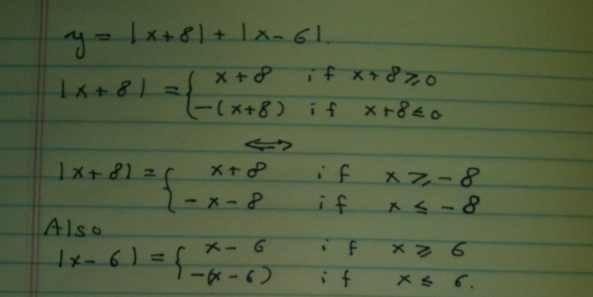 y = |x+8| + |x-6|.
|x+8| = { x+8 if x+8 ⩾ 0
-(x+8) if x+8 ≤ 0
⟷
|x+8| = { x+8 if x ⩾ -8
-x-8 if x ≤ -8
Also
|x-6| = { x-6 if x ⩾ 6
-(x-6) if x ≤ 6.